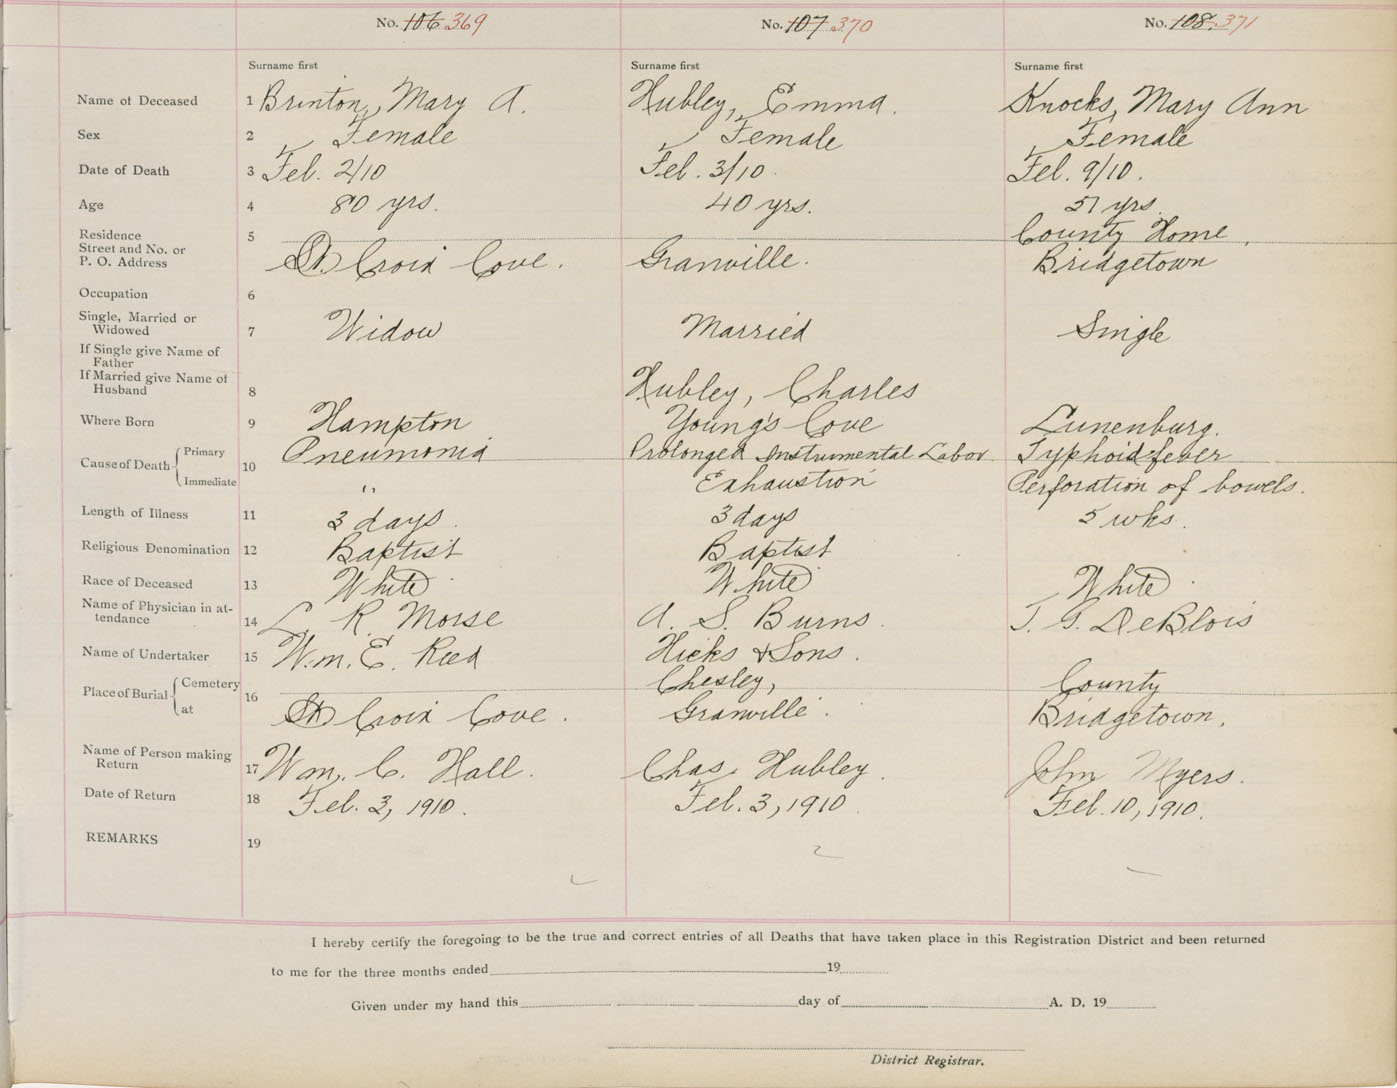 No. 106 369 No. 107 370 No. 108. 371
Surname first Surname first Surname first
Name of Deceased 1 Brinton, Mary A. Hubley, Emma. Knocks, Mary Ann
Sex 2 Female Female Female
Date of Death 3 Feb. 2/10 Feb. 3/10. Feb. 9/10.
Age 4 80 yrs. 40 yrs. 51 yrs.
Residence 5 County Home,
Street and No. or
P. O. Address St Croix Cove. Granville. Bridgetown
Occupation 6
Single, Married or
Widowed 7 Widow Married Single
If Single give Name of
Father
If Married give Name of
Husband 8 Hubley, Charles
Where Born 9 Hampton Young's Cove Lunenburg.
Cause of Death { Primary 10 Pneumonia Prolonged Instrumental Labor Typhoid fever
Immediate " Exhaustion Perforation of bowels.
Length of Illness 11 3 days. 3 days 5 wks.
Religious Denomination 12 Baptist Baptist
Race of Deceased 13 White White White
Name of Physician in at-
tendance 14 L. R. Morse A. S. Burns. J. G. DeBlois
Name of Undertaker 15 Wm. E. Reed Hicks & Sons.
Place of Burial { Cemetery 16 Chesley, County
at St Croix Cove. Granville. Bridgetown.
Name of Person making
Return 17 Wm. C. Hall. Chas. Hubley. John Myers.
Date of Return 18 Feb. 3, 1910. Feb. 3, 1910 Feb. 10, 1910.
REMARKS 19
I hereby certify the foregoing to be the true and correct entries of all Deaths that have taken place in this Registration District and been returned
to me for the three months ended 19
Given under my hand this day of A. D. 19
District Registrar.